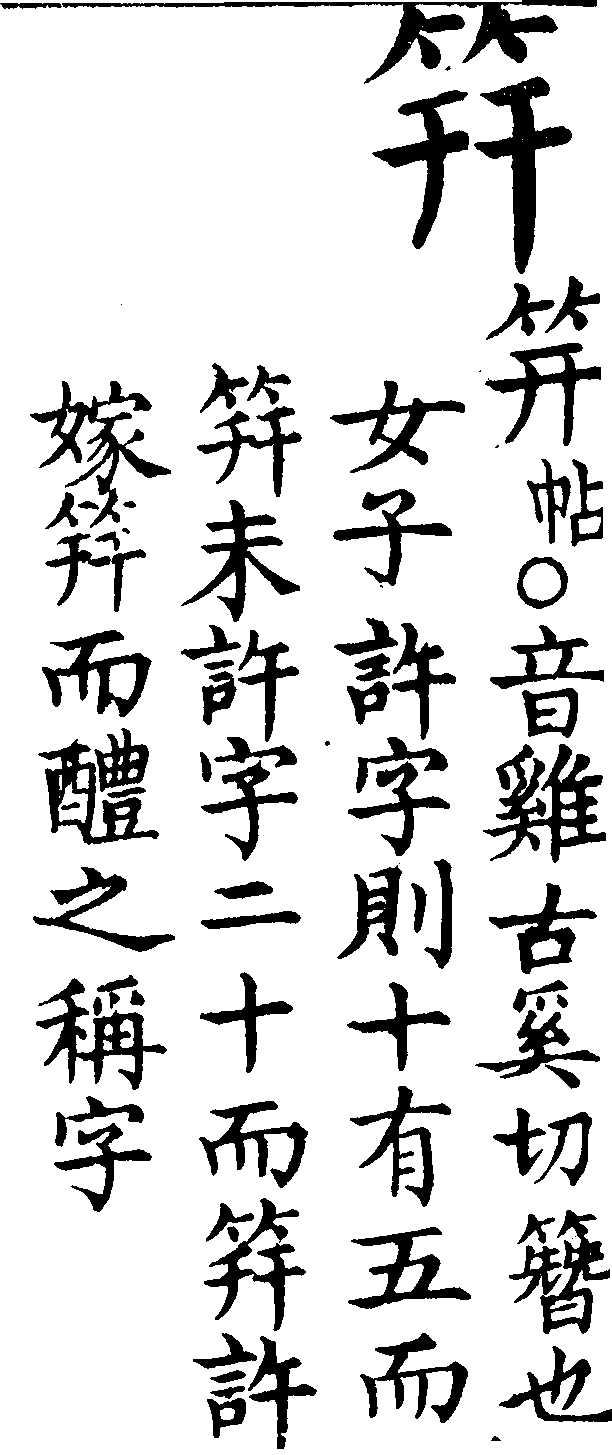 筓
笄帖○音雞古奚切簪也
女子許字則十有五而
筓未許字二十而筓許
嫁筓而醴之稱字